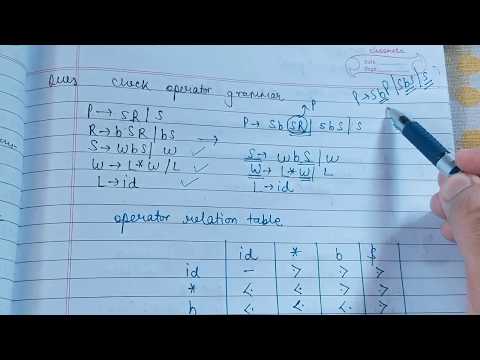 classmate
Date
Page
Ques check operator grammar
P → SbP | SbS | S
P
P → SR | S
R → bSR / bS →
P → Sb SR | SbS | S
S → WbS | W ✓
S → WbS | W
W → L*W / L ✓
W → L*W | L
L → id ✓
L → id
operator relation table
id * b $
id - ⋗ ⋗ ⋗
* ⋖ ⋖ ⋗ ⋗
b ⋖ ⋖ ⋖ ⋗